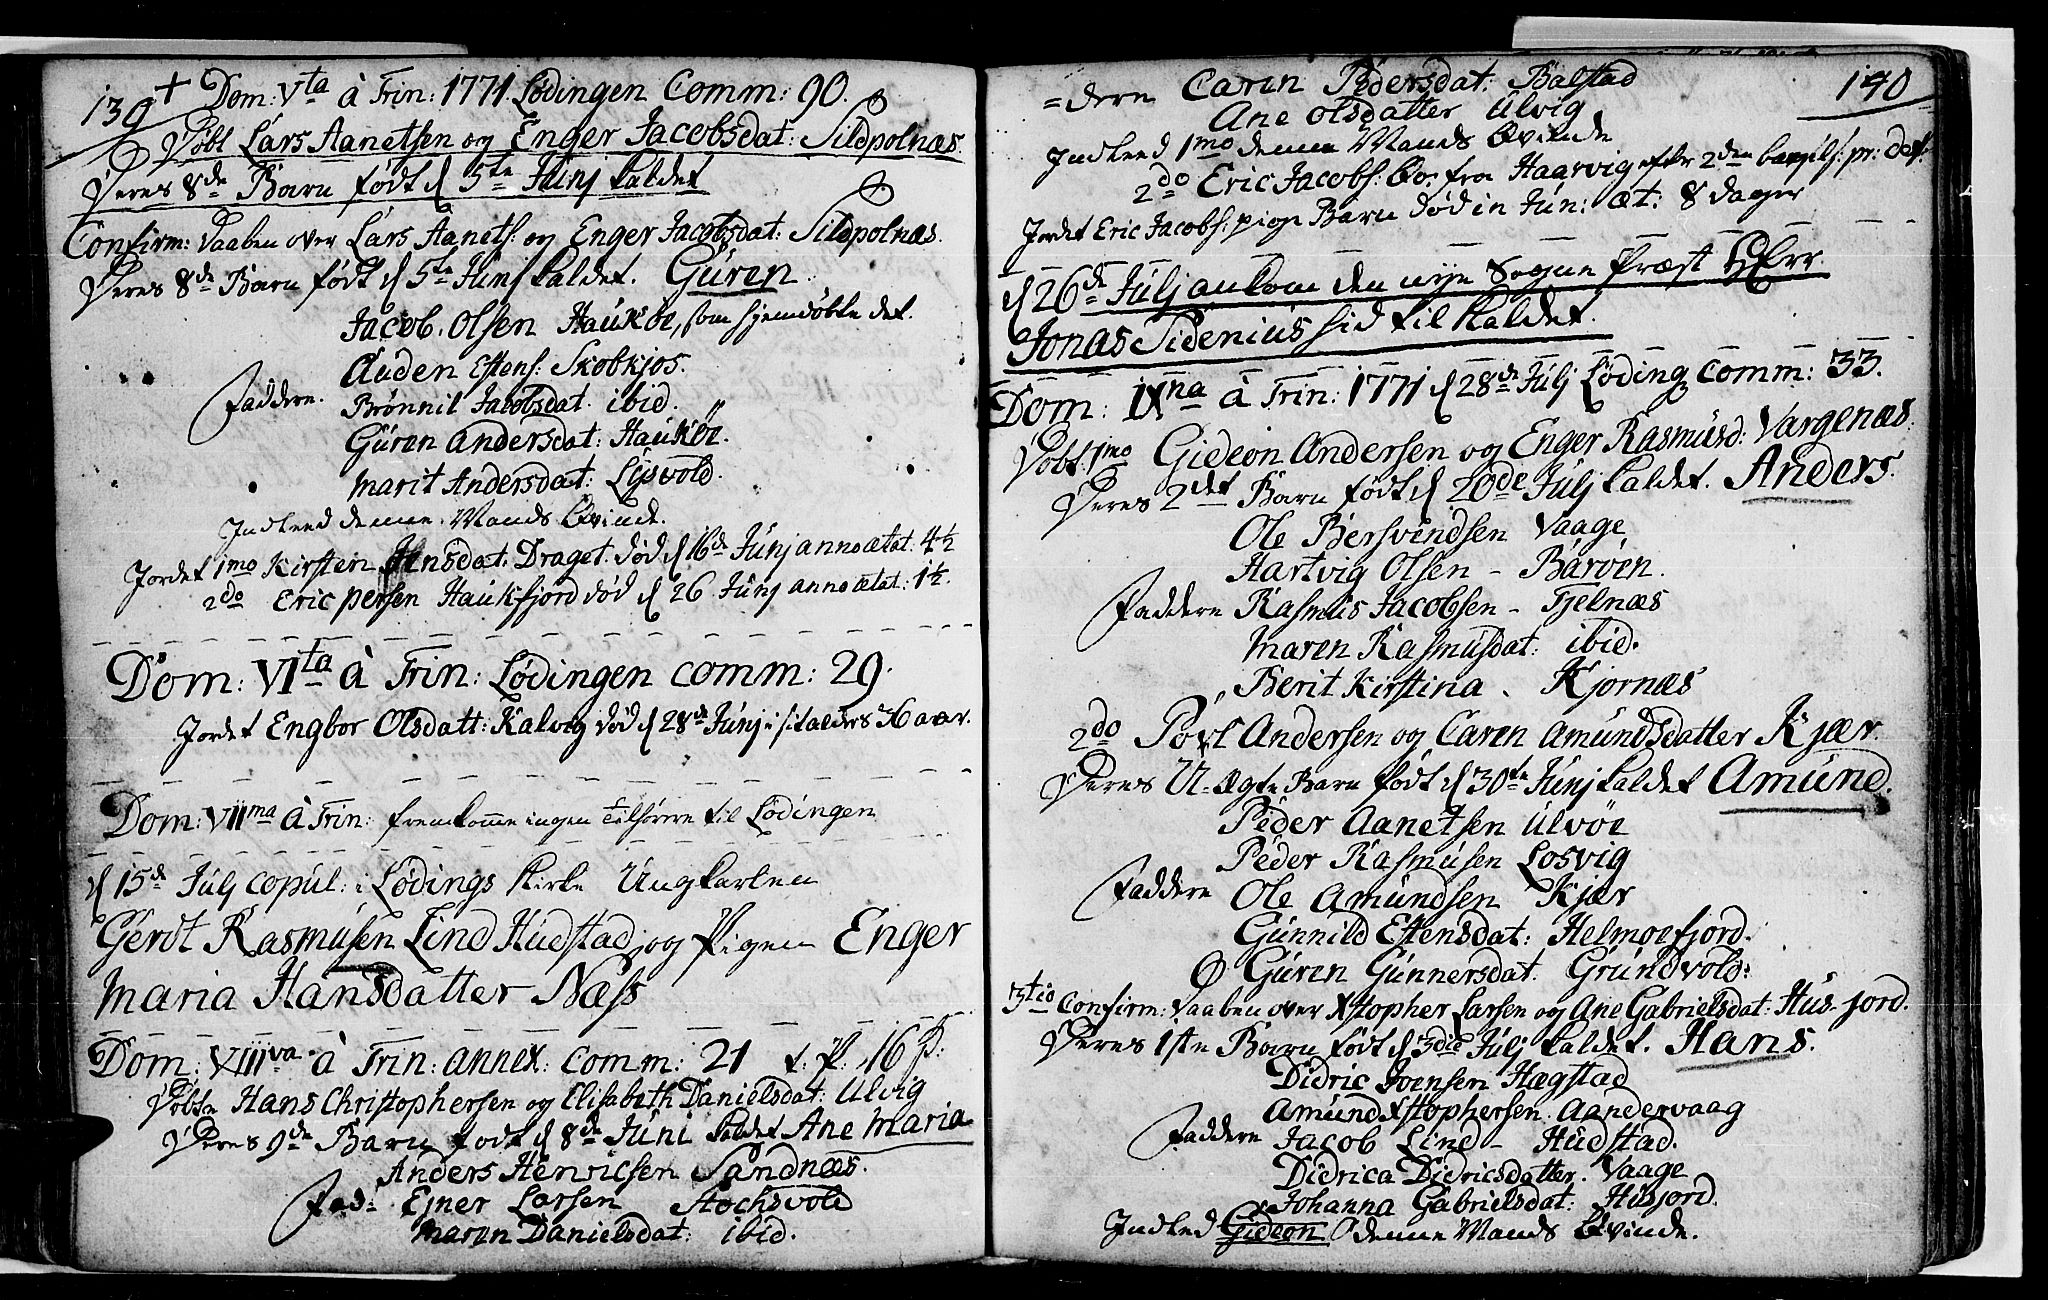 139 + Dom: Vta à Trin: 1771 Lødingen Comm: 90.
Døbt Lars Aanetsen og Enger Jacobsdat: Sildpolnæs.
Deres 8de Barn født d 5te Junj kaldet
Confirm: Daaben over Lars Aanets: og Enger Jacobsdat: Sildpolnæs.
Deres 8de Barn født d 5te Junj kaldet. Guren
Jacob. Olsen Haukøe, som hjemdøbte det.
Auden Estens: Skobkjos.
Faddere. Brønnil Jacobsdat. ibid.
Guren Andersdat: Haukøe.
Marit Andersdat: Lysvold.
Indleed denne Mands Qvinde.
Jordet 1mo Kirsten Jensdat. Draget. død d 16de Junj anno ætat: 4½
2do Eric persen Haukfjord død d 26 Junj anno ætat: 1½.
Dom: VIta à Trin: Lødingen comm: 29.
Jordet Engbor Olsdatt: Kalvig død d 28de Junj i sit alders 36 aar.
Dom: VIIma à Trin: fremkomme ingen Tilhørere til Lødingen
d 15de Julj copul: i Lødings Kirke Ungkarlen
Gerdt Rasmusen Lind Hudstad og Pigen Enger
Maria Hansdatter Næss
Dom: VIIIva à Trin: annex: comm: 21 t. P. 16 P:
Døbte Hans Christophersen og Elisabeth Danielsdat: Ulvig
Deres 9de Barn født d 8de Juni kaldet Ane Maria
Anders Henricsen Sandnæs.
Fad: Ejner Larsen Stochsvold
Maren Danielsdat: ibid.
140
=dere Caren Pedersdat: Balstad
Ane Olsdatter Ulvig
Indleed 1mo denne Mands Qvinde
2do Eric Jacobs: Qv. fra Haarvig efter 2den
Jordet Eric Jacobs: pige Barn død in Jun: æt: 8 dager
d 26de Julj ankom den nye Sogne Præst Hr.
Jonas Sidenius hid til Kaldet.
Dom: IXna à Trin: 1771 d 28de Julj Løding comm: 33.
Døbt 1mo Gideon Andersen og Enger Rasmusd: Vargenæs.
Deres 2det Barn født d 20de Julj kaldet. Anders.
Ole Bersvindsen Vaage
Hartvig Olsen - Barøen.
Faddere Rasmus Jacobsen - Tjelnæs
Maren Rasmusdat: ibid.
Berit Kirstina. Kjornæs
2do Povl Andersen og Caren Amundsdatter Kjær.
Deres U-Ægte Barn født d 30te Junj kaldet Amund.
Peder Aanetsen Ulvøe
Peder Rasmusen Losvig
Faddere Ole Amundsen Kjær
Gunnild Estensdat: Helmoefjord.
Guren Gunnersdat. Grundvold:
3tio Confirm: Daaben over Xstopher Larsen og Ane Gabrielsdat: Hus-jord.
Deres 1ste Barn født d 3die Julj kaldet. Hans.
Didric Ivensen Hægstad
Amund Xstophersen. Aandervaag
Faddere Jacob Lind - Hudstad.
Didrica Didricsdatter. Vaage
Johanna Gabrielsdat: Husjord.
Indled Gideon denne Mands Qvinde.